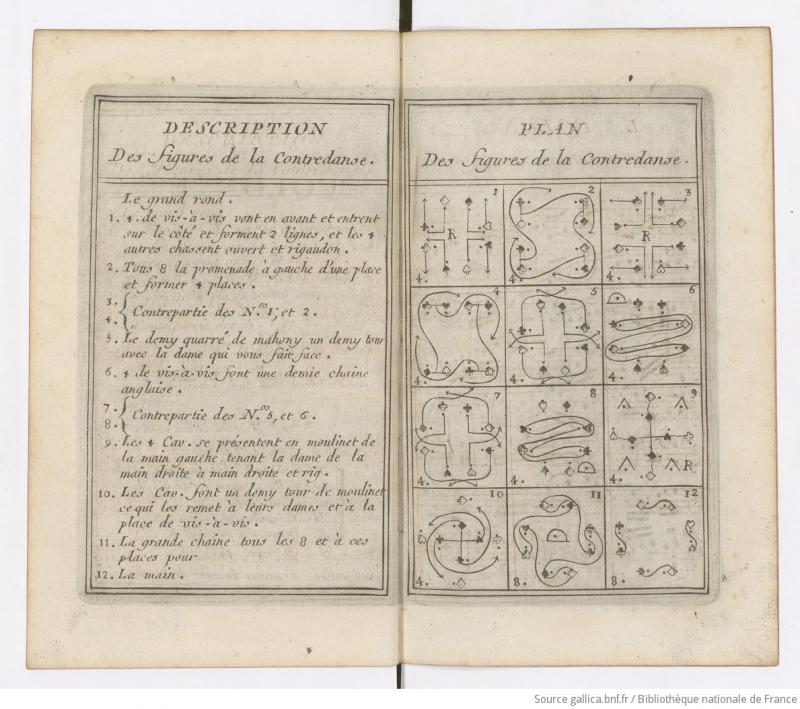 DESCRIPTION
Des figures de la Contredanse.
Le grand rond.
1. 4. de vis-à-vis vont en avant et entrent
sur le côté et forment 2 lignes, et les 4
autres chassent ouvert et rigaudon.
2. Tous 8 la promenade à gauche d'une place
et former 4 places.
3.
4. { Contrepartie des N.os 1, et 2.
5. Le demy quarré de mahony un demy tour
avec la dame qui vous fait face.
6. 4 de vis-à-vis font une demie chaine
anglaise.
7.
8. { Contrepartie des N.os 5, et 6.
9. Les 4 Cav. se présentent en moulinet de
la main gauche tenant la dame de la
main droite à main droite et rig.
10. Les Cav. font un demy tour de moulinet
ce qui les remet à leurs dames et à la
place de vis-à-vis.
11. La grande chaine tous les 8 et à ces
places pour
12. La main.
PLAN
Des figures de la Contredanse.
1 2 3
R R
4. 4. 4.
4 5 6
4. 4. 4.
7 8 9
R
4. 4. 4.
10 11 12
4. 8. 8.
Source gallica.bnf.fr / Bibliothèque nationale de France